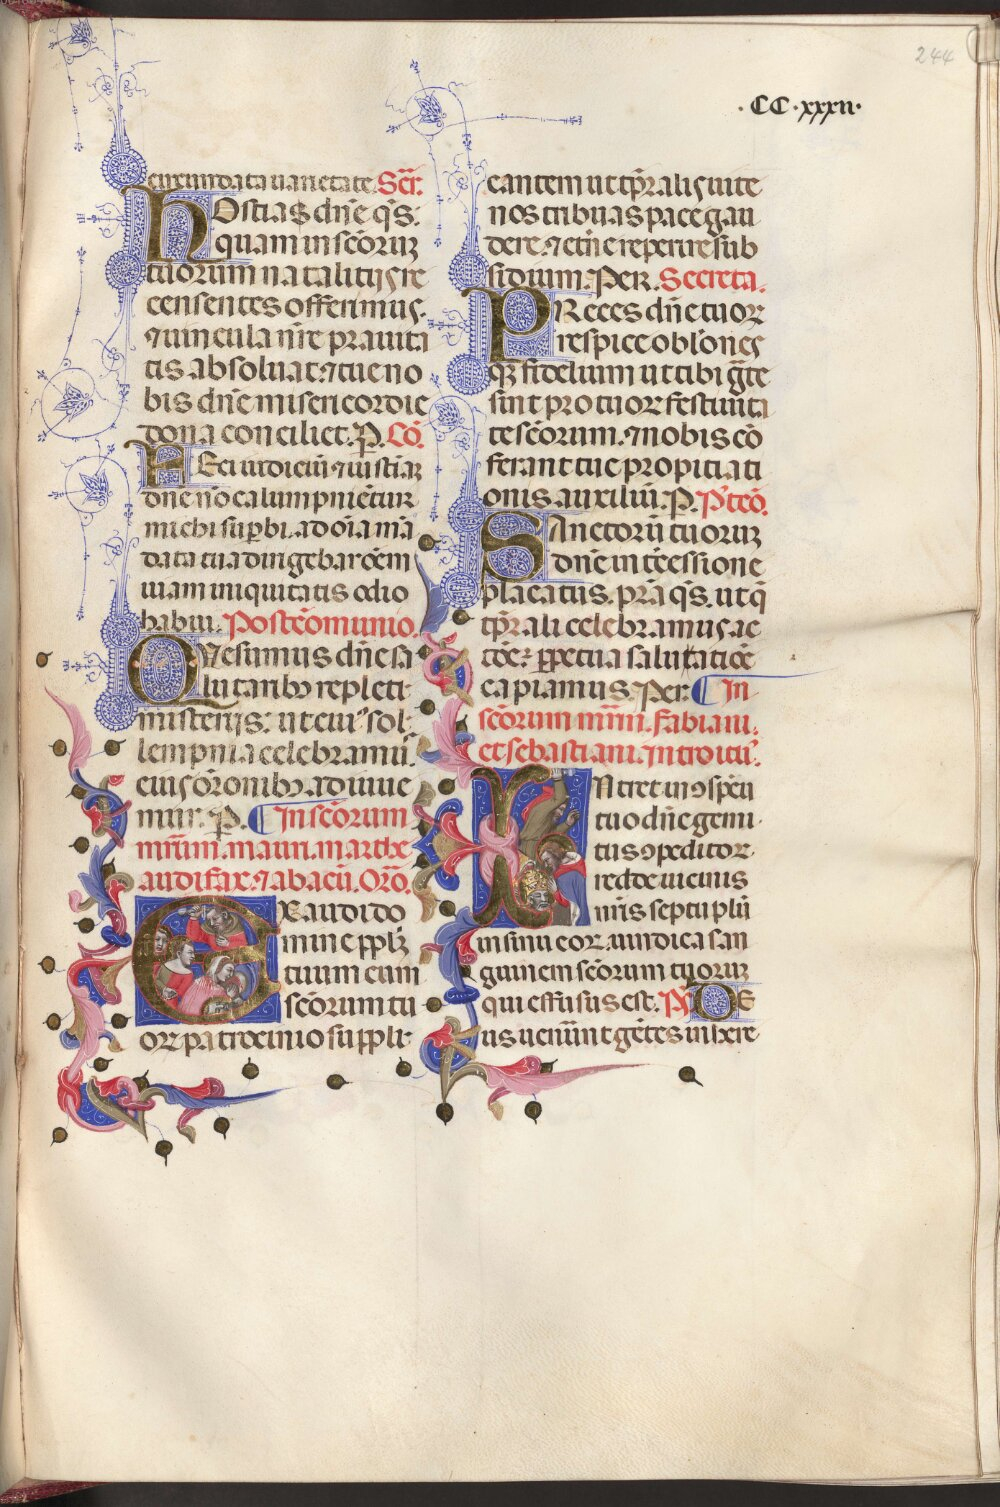 244
· CC · xxxii ·
circumdata uarietate. Secr̄.
HOstias dn̄e q̄s.
quam in scōruꝫ
tuorum natalitijs re
censentes offerimus.
⁊ uincula nr̄e prauita
tis absoluat. ⁊ tue no
bis dn̄e misericordie
dona conciliet. P̱. Cō.
FEci iudiciū ⁊ iustiaꝫ
dn̄e nō calumpnientur
michi suꝑbi. ad oīa mā
data tua dirigebar oēm
uiam iniquitatis odio
habui. Postcōmunio.
QVesumus dn̄e sa
lutaribꝫ repleti
misterijs. ut cuiꝰ sol
lempnia celebramus
eius ōronibꝫ adiuue
mur. P̱. ¶ In scōrum
mr̄um. mauri. marthe
audifax. ⁊ abacū. Orō.
EXaudi do
mine ppl̄ꝫ
tuum cum
scōrum tu
oꝝ patrocinio suppli
cantem ut tp̄ralis uite
nos tribuas pace gau
dere. ⁊ etn̄e reperire sub
sidium. Per. Secreta.
PReces dn̄e tuoꝝ
respice oblōnes
qꝫ fidelium ut tibi gr̄te
sint pro tuoꝝ festiuita
te scōrum. ⁊ nobis cō
ferant tue propitiati
onis auxiliū. P̱. Pꝰtcō.
SAnctorū tuoruꝫ
dn̄e intēcessione
placatus. pr̄a q̄s. ut q̄
tp̄rali celebramus ac
tōe. ꝑpetua saluatiōe
capiamus. Per. ¶ In
scōrum mr̄um. fabiani.
et sebastiani. Introitꝰ.
INtret in ꝯspcū
tuo dn̄e gemi
tus ꝯpeditoꝝ
redde uicinis
nr̄is septuplū
in sinu eoꝝ. uindica san
guinem scōrum tuoruꝫ
qui effusus est. Ps̄. DE
us uenerūt gētes in here